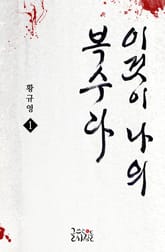 이것이 나의
복수다
황규영
1